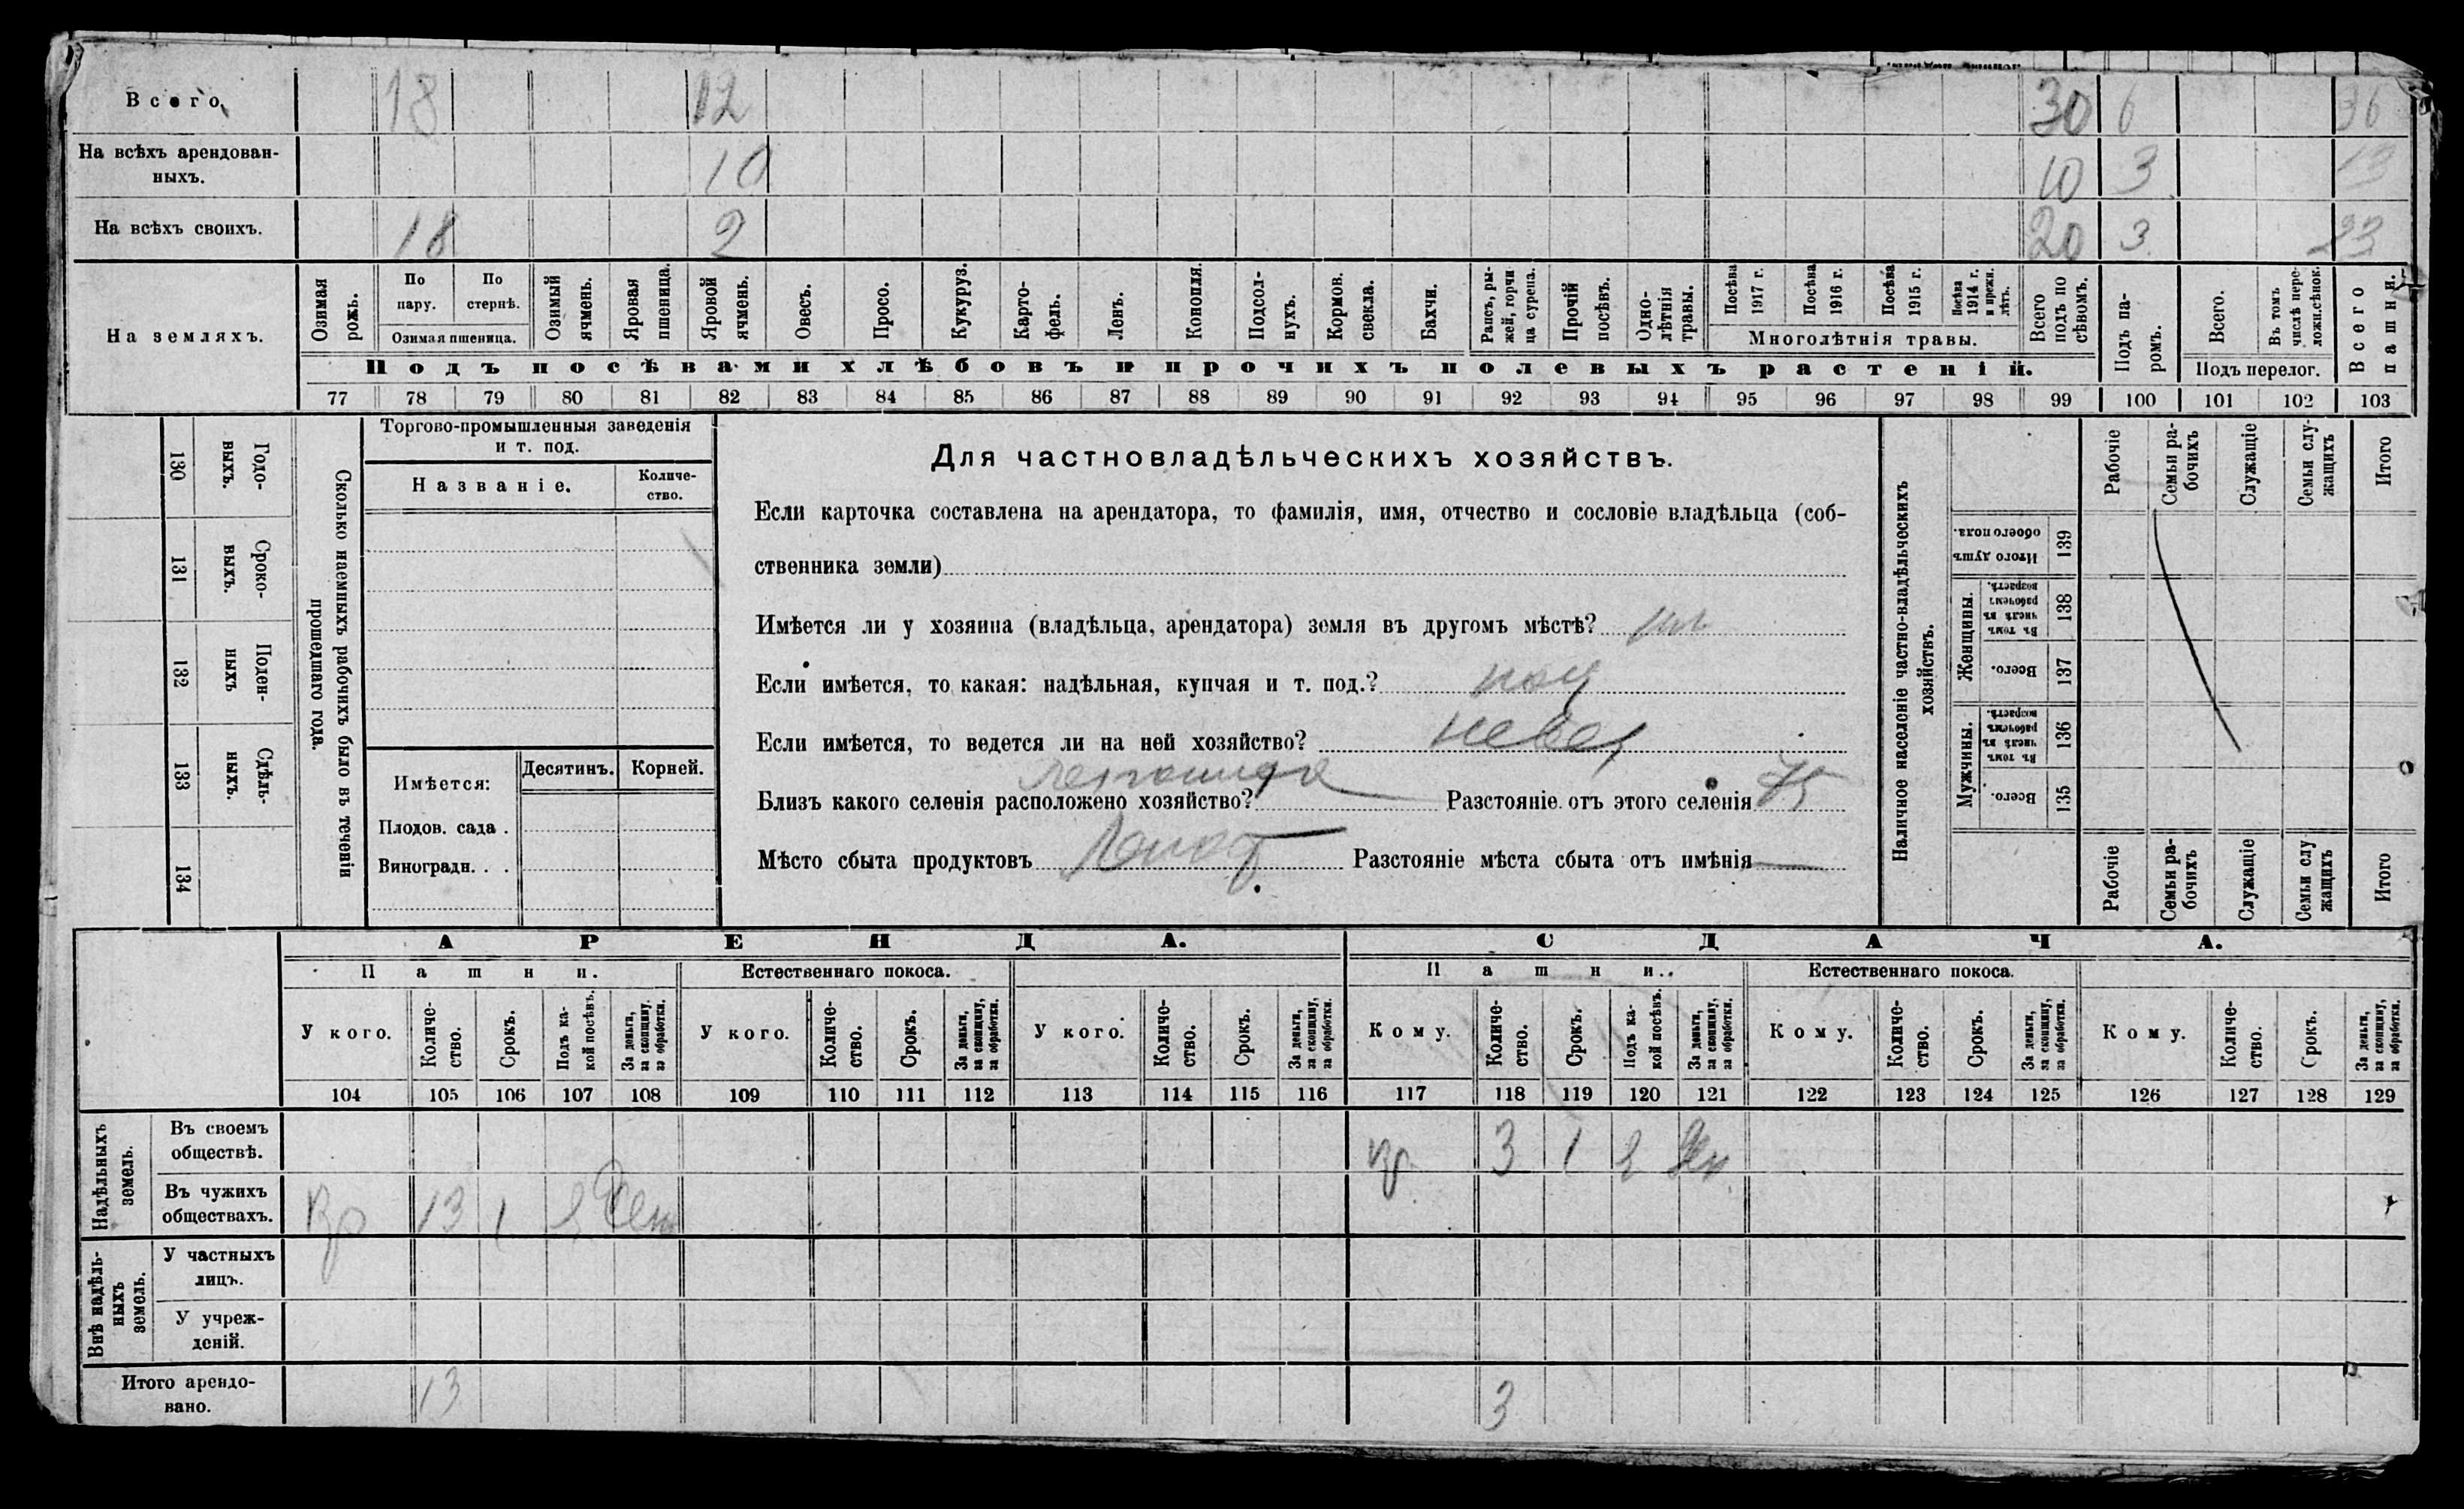 Всего 18 12 30 6 36
На всѣхъ арендован-
ныхъ. 10 10 3 13
На всѣхъ своихъ. 18 2 20 3 23
На земляхъ.
Озимая рожь.
По пару.
По стернѣ.
Озимая пшеница.
Озимый ячмень.
Яровая пшеница.
Яровой ячмень.
Овесъ.
Просо.
Кукуруз.
Карто-
фель.
Ленъ.
Конопля.
Подсол-
нухъ.
Кормов. свекла.
Бахчи.
Рапсъ, ры-
жей, горчи
ца сурепа.
Прочій посѣвъ.
Одно-
лѣтнія
травы.
Посѣва 1917 г.
Посѣва 1916 г.
Посѣва 1915 г.
Посѣва 1914 г. и прежн. лѣтъ.
Многолѣтнія травы.
Всего подъ по сѣвомъ.
Подъ па-
ромъ.
Всего.
Въ томъ числѣ пере-
ложн.сѣнок.
Подъ перелог.
Всего пашни.
Подъ посѣвами хлѣбовъ и прочихъ полевыхъ растеній.
77 78 79 80 81 82 83 84 85 86 87 88 89 90 91 92 93 94 95 96 97 98 99 100 101 102 103
130 Годо-
выхъ.
131 Сроко-
выхъ.
132 Поден-
ныхъ
133 Сдѣль-
ныхъ.
134
Сколько наемныхъ рабочихъ было въ теченіи
прошедшаго года.
Торгово-промышленныя заведенія
и т. под.
Названіе.
Количе-
ство.
Имѣется:
Десятинъ. Корней.
Плодов. сада .
Виноградн. . .
Для частновладѣльческихъ хозяйствъ.
Если карточка составлена на арендатора, то фамилія, имя, отчество и сословіе владѣльца (соб-
ственника земли)
Имѣется ли у хозяина (владѣльца, арендатора) земля въ другомъ мѣстѣ?
Если имѣется, то какая: надѣльная, купчая и т. под.?
Если имѣется, то ведется ли на ней хозяйство?
Близъ какого селенія расположено хозяйство? Разстояніе отъ этого селенія
Мѣсто сбыта продуктовъ Разстояніе мѣста сбыта отъ имѣнія
Наличное населеніе частно-владѣльческихъ
хозяйствъ.
Рабочіе
Семьи ра-
бочихъ
Служащіе
Семьи слу-
жащихъ
Итого
Итого душъ обоего пола. 139
Женщины.
Въ томъ числѣ въ рабочемъ возрастѣ. 138
Всего. 137
Мужчины.
Въ томъ числѣ въ рабочемъ возрастѣ. 136
Всего. 135
Рабочіе
Семьи ра-
бочихъ
Служащіе
Семьи слу
жащихъ
Итого
АРЕНДА. СДАЧА.
Пашни. Естественнаго покоса. Пашни. Естественнаго покоса.
У кого.
Количе-
ство.
Срокъ.
Подъ ка-
кой посѣвъ.
За деньги, за скопщину, за обработки.
У кого.
Количе-
ство.
Срокъ.
За деньги, за скопщину, за обработки.
У кого.
Количе-
ство.
Срокъ.
За деньги, за скопщину, за обработки.
Кому.
Количе-
ство.
Срокъ.
Подъ ка-
кой посѣвъ.
За деньги, за скопщину, за обработки.
Кому.
Количе-
ство.
Срокъ.
За деньги, за скопщину, за обработки.
Кому.
Количе-
ство.
Срокъ.
За деньги, за скопщину, за обработки.
104 105 106 107 108 109 110 111 112 113 114 115 116 117 118 119 120 121 122 123 124 125 126 127 128 129
Надѣльныхъ
земель.
Въ своемъ
обществѣ. 3 1
Въ чужихъ
обществахъ. 13 1
Внѣ надѣль-
ныхъ
земель.
У частныхъ
лицъ.
У учреж-
деній.
Итого арендо-
вано. 13 3